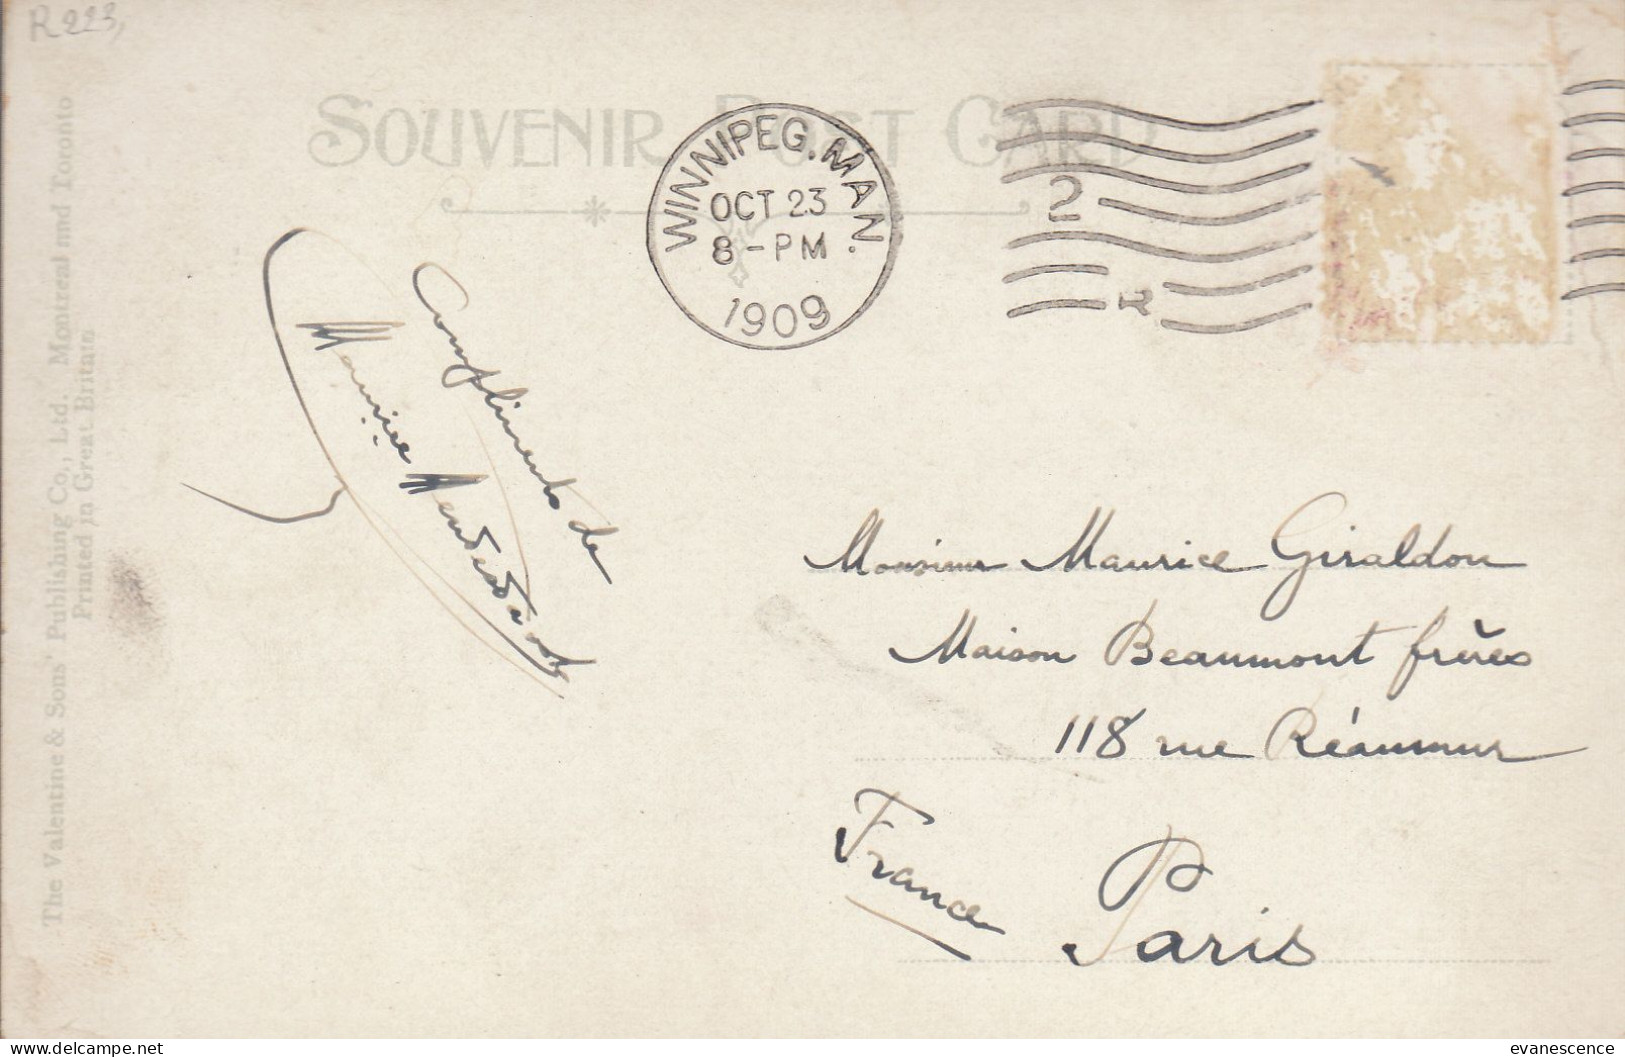 R223,
SOUVENIR POST CARD
WINNIPEG. MAN.
OCT 23
8-PM
1909
2
R
Compliments de
Maurice
Monsieur Maurice Giraldon
Maison Beaumont frères
118 rue Réaumur
France
Paris
The Valentine & Sons' Publishing Co., Ltd. Montreal and Toronto
Printed in Great Britain
evanescence